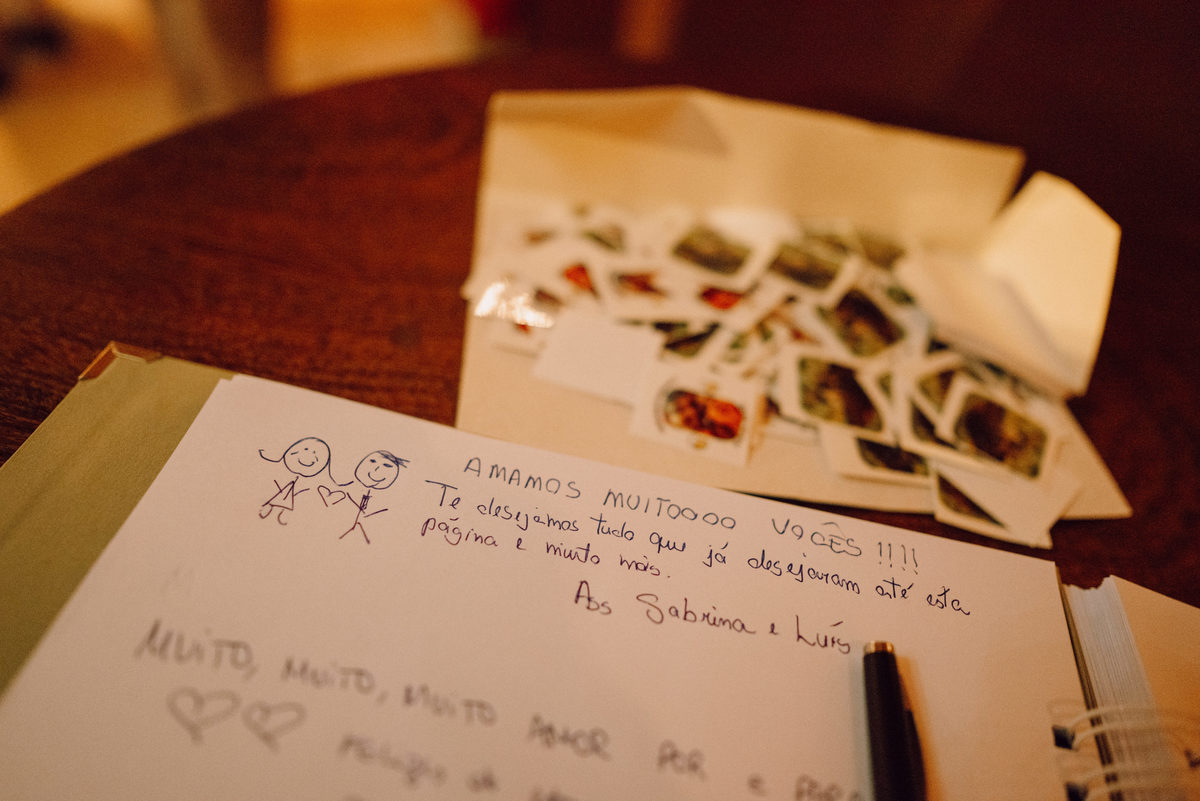 AMAMOS MUITOOOO VOCÊS !!!!
Te desejamos tudo que já desejaram até esta
página e muito mais.
Ass Sabrina e Luís
MUITO, MUITO, MUITO AMOR POR e PARA